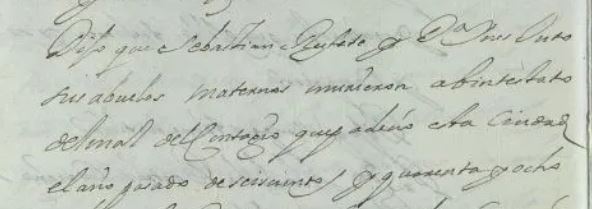 Dijo que Sebastian Rufete y Dª Ines
sus abuelos maternos murieron abintestato
del mal del Contagio que padecio esta Ciudad
el año pasado de seiscientos y quarenta y ocho